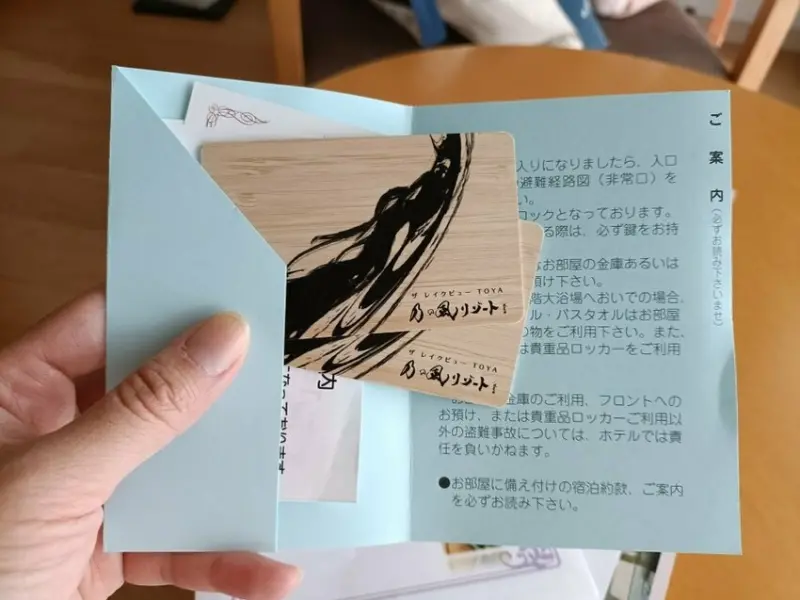 ご案内(必ずお読み下さいませ)
入りになりましたら、入口
避難経路図(非常口)を
い。
ロックとなっております。
る際は、必ず鍵をお持
なお部屋の金庫あるいは
頂け下さい。
階大浴場へおいでの場合、
ル・バスタオルはお部屋
の物をご利用下さい。また、
は貴重品ロッカーをご利用
金庫のご利用、フロントへの
お預け、または貴重品ロッカーご利用以
外の盗難事故については、ホテルでは責
任を負いかねます。
●お部屋に備え付けの宿泊約款、ご案内
を必ずお読み下さい。
ザ レイクビュー TOYA
乃の風リゾート
ザ レイクビュー TOYA
乃の風リゾート
内
なっております